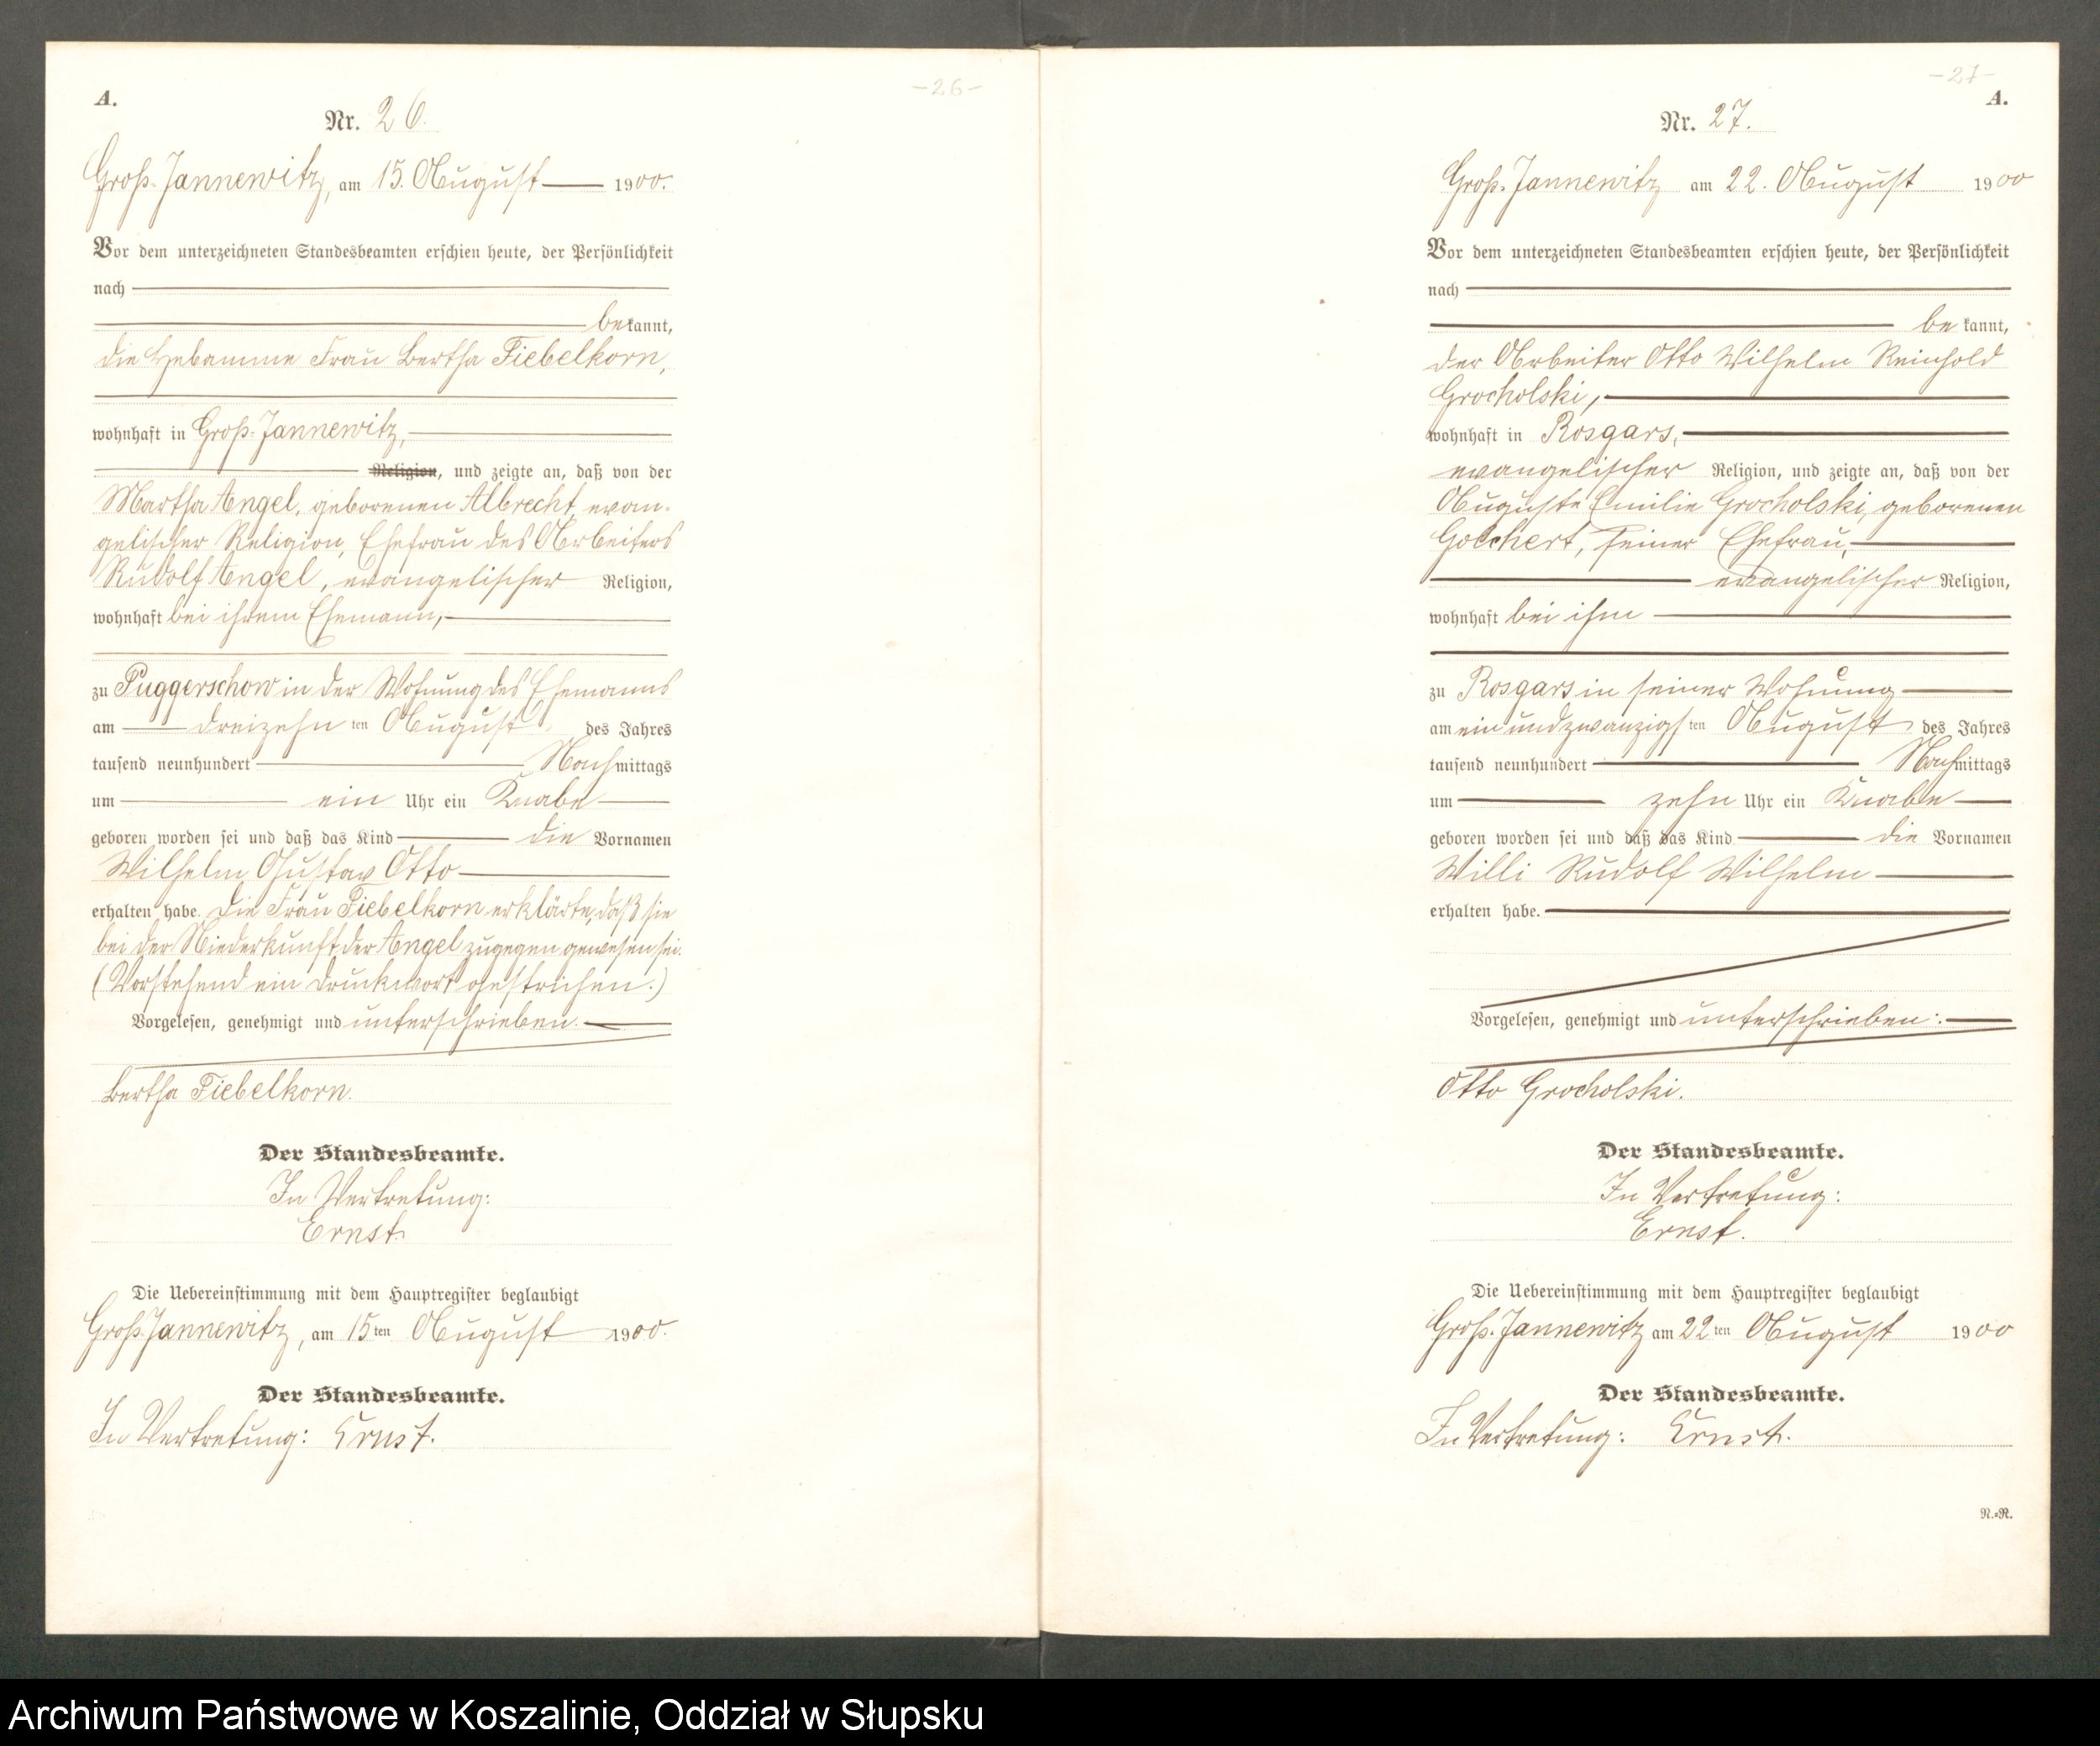 -26-
A.
Nr. 26.
Groß-Jannewitz, am 15. August 1900.
Vor dem unterzeichneten Standesbeamten erschien heute, der Persönlichkeit
nach
bekannt,
die Hebamme Frau Bertha Fiebelkorn,
wohnhaft in Groß-Jannewitz,
Religion, und zeigte an, daß von der
Martha Angel, geborenen Albrecht, evan-
gelischer Religion, Ehefrau des Arbeiters
Rudolf Angel, evangelischer Religion,
wohnhaft bei ihrem Ehemann,
zu Puggerschow in der Wohnung des Ehemanns
am dreizehn ten August des Jahres
tausend neunhundert Nachmittags
um ein Uhr ein Knabe
geboren worden sei und daß das Kind die Vornamen
Wilhelm Gustav Otto
erhalten habe. Die Frau Fiebelkorn erklärte, daß sie
bei der Niederkunft der Angel zugegen gewesen sei.
(Vorstehend ein Druckwort gestrichen.)
Vorgelesen, genehmigt und unterschrieben.
Bertha Fiebelkorn.
Der Standesbeamte.
In Vertretung:
Ernst.
Die Uebereinstimmung mit dem Hauptregister beglaubigt
Groß-Jannewitz, am 15ten August 1900.
Der Standesbeamte.
In Vertretung: Ernst.
-27-
A.
Nr. 27.
Groß-Jannewitz am 22. August 1900
Vor dem unterzeichneten Standesbeamten erschien heute, der Persönlichkeit
nach
be kannt,
der Arbeiter Otto Wilhelm Reinhold
Grocholski,
wohnhaft in Rosgars,
evangelischer Religion, und zeigte an, daß von der
Auguste Emilie Grocholski, geborenen
Golchert, seiner Ehefrau,
evangelischer Religion,
wohnhaft bei ihm
zu Rosgars in seiner Wohnung
am ein und zwanzigsten August des Jahres
tausend neunhundert Nachmittags
um zehn Uhr ein Knabe
geboren worden sei und daß das Kind die Vornamen
Willi Rudolf Wilhelm
erhalten habe.
Vorgelesen, genehmigt und unterschrieben:
Otto Grocholski.
Der Standesbeamte.
In Vertretung:
Ernst.
Die Uebereinstimmung mit dem Hauptregister beglaubigt
Groß-Jannewitz am 22ten August 1900
Der Standesbeamte.
In Vertretung: Ernst.
N.=R.
Archiwum Państwowe w Koszalinie, Oddział w Słupsku